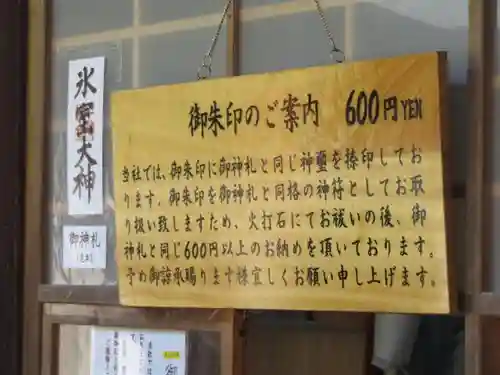 御朱印のご案内 600円YEN
当社では、御朱印に御神札と同じ神璽を捺印しており
ります。御朱印を御神札と同格の神符としてお取
り扱い致しますため、火打石にてお祓いの後、御
神札と同じ600円以上のお納めを頂いております。
予め御諒承賜ります様宜しくお願い申し上げます。
氷室大神
御神札